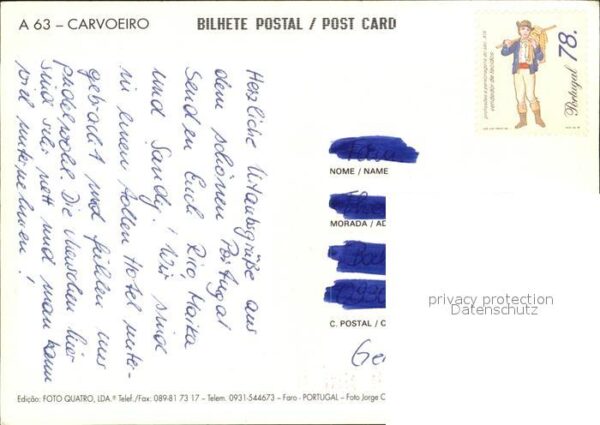 A 63 – CARVOEIRO
BILHETE POSTAL / POST CARD
Herzliche Urlaubsgrüße aus
dem schönen Portugal
Senden Euch Rico Maika
und Sandy! Wir sind
in einen tollen Hotel unter-
gebracht und fühlen uns
pudelwohl. Die Menschen hier
sind sehr nett und man kann
viel unternehmen!
profissões e personagens do séc. XIX
vendedor de tecidos
Portugal 78.
NOME / NAME
MORADA / AD
C. POSTAL / C
Ge
privacy protection
Datenschutz
Edição: FOTO QUATRO, LDA.ª Telef./Fax: 089-81 73 17 – Telem. 0931-544673 – Faro - PORTUGAL – Foto Jorge C